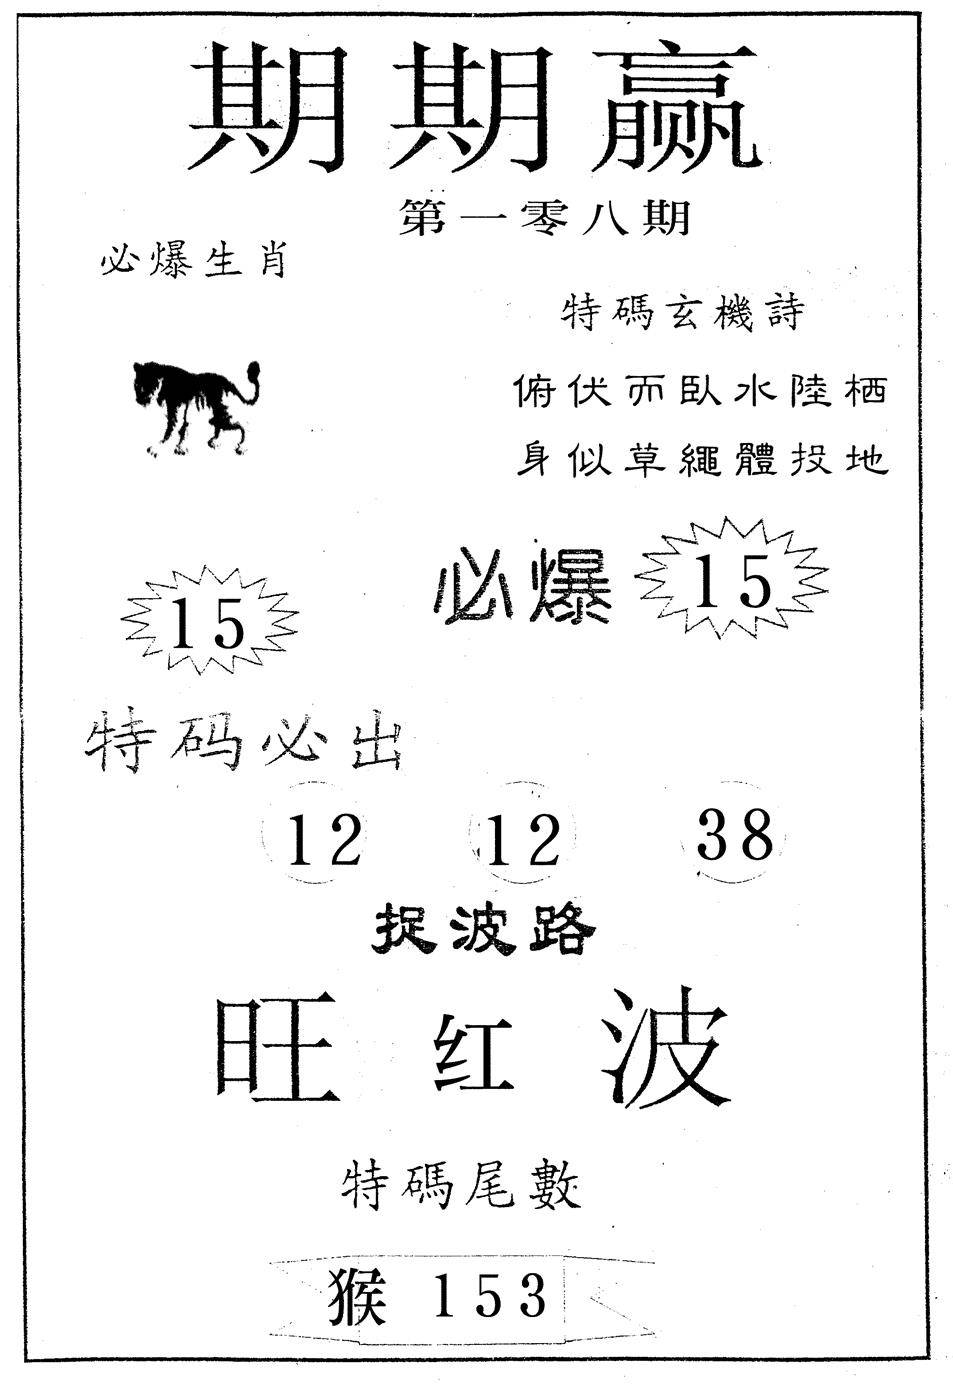 期期赢
第一零八期
必爆生肖
特碼玄機詩
俯伏而臥水陸栖
身似草繩體投地
必爆 15
15
特码必出
12 12 38
捉波路
旺红波
特碼尾數
猴 153